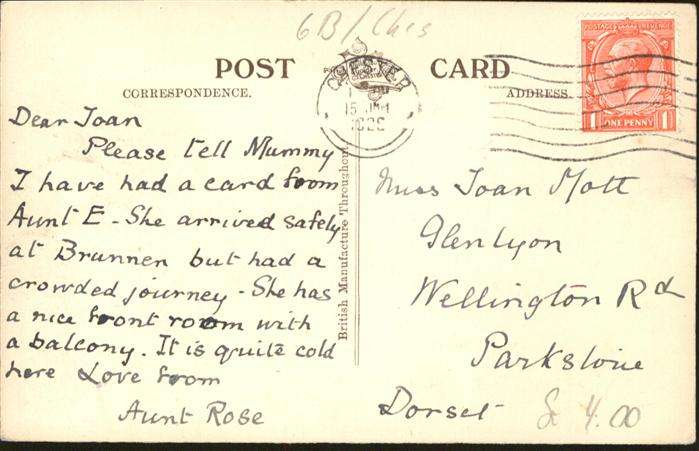 6B/Ches
POST CARD
CORRESPONDENCE.
ADDRESS.
CHESTER
15 JUN
POSTAGE REVENUE
1 ONE PENNY 1
Dear Joan
Please tell Mummy
I have had a card from
Aunt E - She arrived safely
at Brunnen but had a
crowded journey - She has
a nice front room with
a balcony. It is quite cold
here Love from
Aunt Rose
British Manufacture Throughout
Miss Joan Mott
Glenlyon
Wellington Rd
Parkstone
Dorset
£ 4.00